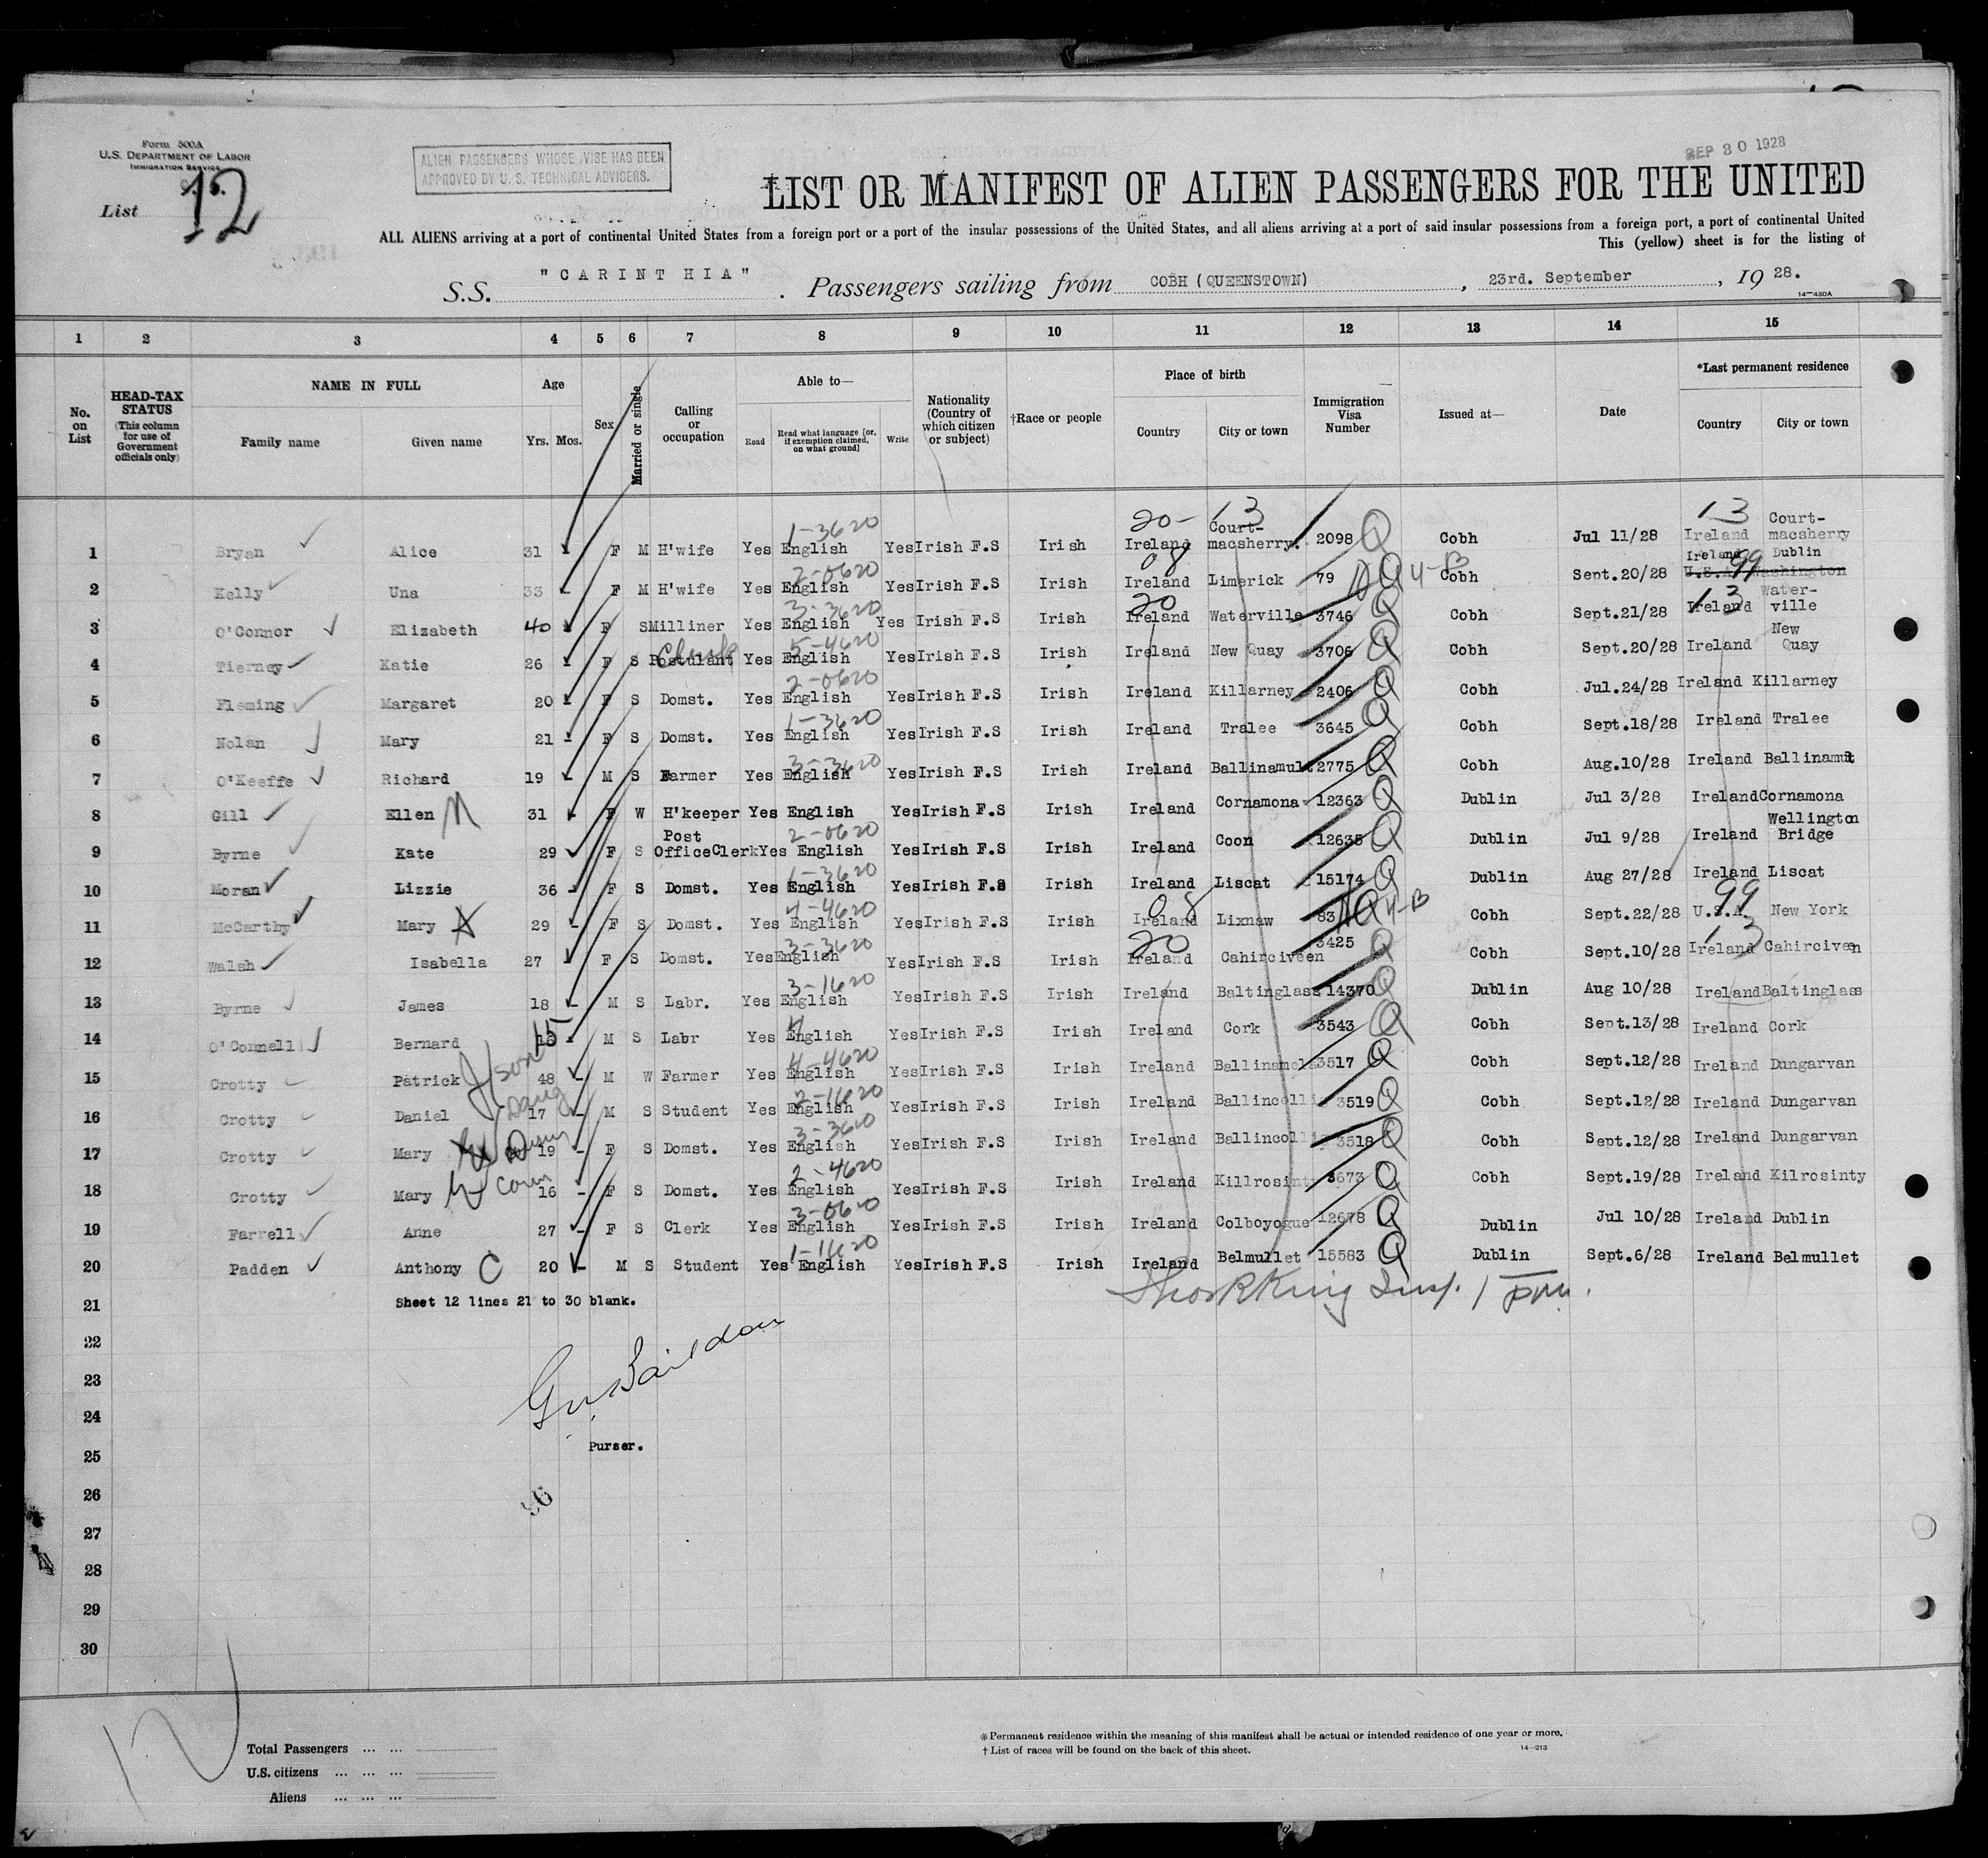 SEP 30 1928
Form 500A
U.S. DEPARTMENT OF LABOR
IMMIGRATION SERVICE
List 12
ALIEN PASSENGERS WHOSE VISE HAS BEEN
APPROVED BY U. S. TECHNICAL ADVISERS.
LIST OR MANIFEST OF ALIEN PASSENGERS FOR THE UNITED
ALL ALIENS arriving at a port of continental United States from a foreign port or a port of the insular possessions of the United States, and all aliens arriving at a port of said insular possessions from a foreign port, a port of continental United
This (yellow) sheet is for the listing of
S.S. "CARINTHIA". Passengers sailing from COBH (QUEENSTOWN), 23rd. September, 19 28.
14—430A
1 2 3 4 5 6 7 8 9 10 11 12 13 14 15
No. on List
HEAD-TAX STATUS (This column for use of Government officials only)
NAME IN FULL Family name Given name
Age Yrs. Mos.
Sex
Married or single
Calling or occupation
Able to— Read Read what language [or, if exemption claimed, on what ground] Write
Nationality (Country of which citizen or subject)
†Race or people
Place of birth Country City or town
Immigration Visa Number
Issued at—
Date
*Last permanent residence Country City or town
1 Bryan Alice 31 F M H'wife Yes English 1-3620 Yes Irish F.S Irish Ireland 20- Court-macsherry. 13 2098 Q Cobh Jul 11/28 Ireland 13 Court-macsherry
2 Kelly Una 33 F M H'wife Yes English 2-0620 Yes Irish F.S Irish Ireland 08 Limerick 79 NQ 4-B Cobh Sept.20/28 Ireland Dublin U.S.A. 99 Washington
3 O'Connor Elizabeth 40 F S Milliner Yes English 3-3620 Yes Irish F.S Irish Ireland 20 Waterville 3746 Q Cobh Sept.21/28 Ireland 13 Water-ville
4 Tierney Katie 26 F S Postulant Clerk Yes English 5-4620 Yes Irish F.S Irish Ireland New Quay 3706 Q Cobh Sept.20/28 Ireland New Quay
5 Fleming Margaret 20 F S Domst. Yes English 2-0620 Yes Irish F.S Irish Ireland Killarney 2406 Q Cobh Jul.24/28 Ireland Killarney
6 Nolan Mary 21 F S Domst. Yes English 1-3620 Yes Irish F.S Irish Ireland Tralee 3645 Q Cobh Sept.18/28 Ireland Tralee
7 O'Keeffe Richard 19 M S Farmer Yes English 3-3620 Yes Irish F.S Irish Ireland Ballinamult 2775 Q Cobh Aug.10/28 Ireland Ballinamult
8 Gill Ellen N 31 F W H'keeper Yes English Yes Irish F.S Irish Ireland Cornamona 12363 Q Dublin Jul 3/28 Ireland Cornamona
9 Byrne Kate 29 F S Post Office Clerk Yes English 2-0620 Yes Irish F.S Irish Ireland Coon 12635 Q Dublin Jul 9/28 Ireland Wellington Bridge
10 Moran Lizzie 36 F S Domst. Yes English 1-3620 Yes Irish F.S Irish Ireland Liscat 15174 Q Dublin Aug 27/28 Ireland Liscat
11 McCarthy Mary 29 F S Domst. Yes English 4-4620 Yes Irish F.S Irish Ireland 08 Lixnaw 83 NQ 4-B Cobh Sept.22/28 U.S.A. 99 New York
12 Walsh Isabella 27 F S Domst. Yes English 3-3620 Yes Irish F.S Irish Ireland 20 Cahirciveen 3425 Q Cobh Sept.10/28 Ireland 13 Cahirciveen
13 Byrne James 18 M S Labr. Yes English 3-1620 Yes Irish F.S Irish Ireland Baltinglass 14370 Q Dublin Aug 10/28 Ireland Baltinglass
14 O'Connell Bernard 15 M S Labr Yes English 4 Yes Irish F.S Irish Ireland Cork 3543 Q Cobh Sept.13/28 Ireland Cork
15 Crotty Patrick 48 M W Farmer Yes English 4-4620 Yes Irish F.S Irish Ireland 3517 Q Cobh Sept.12/28 Ireland Dungarvan
16 Crotty Daniel son 17 M S Student Yes English 2-1620 Yes Irish F.S Irish Ireland Ballincolli 3519 Q Cobh Sept.12/28 Ireland Dungarvan
17 Crotty Mary Daug 19 F S Domst. Yes English 3-3620 Yes Irish F.S Irish Ireland Ballincolli 3518 Q Cobh Sept.12/28 Ireland Dungarvan
18 Crotty Mary 16 F S Domst. Yes English 2-4620 Yes Irish F.S Irish Ireland Killrosinty 3673 Q Cobh Sept.19/28 Ireland Kilrosinty
19 Farrell Anne 27 F S Clerk Yes English 3-0620 Yes Irish F.S Irish Ireland Colboyogue 12678 Q Dublin Jul 10/28 Ireland Dublin
20 Padden Anthony C 20 M S Student Yes English 1-1620 Yes Irish F.S Irish Ireland Belmullet 15583 Q Dublin Sept.6/28 Ireland Belmullet
21 Sheet 12 lines 21 to 30 blank.
22
23
24
25 Purser.
26
27
28
29
30
Total Passengers ... ...
U.S. citizens ... ... ...
Aliens ... ... ...
*Permanent residence within the meaning of this manifest shall be actual or intended residence of one year or more.
†List of races will be found on the back of this sheet.
14—213